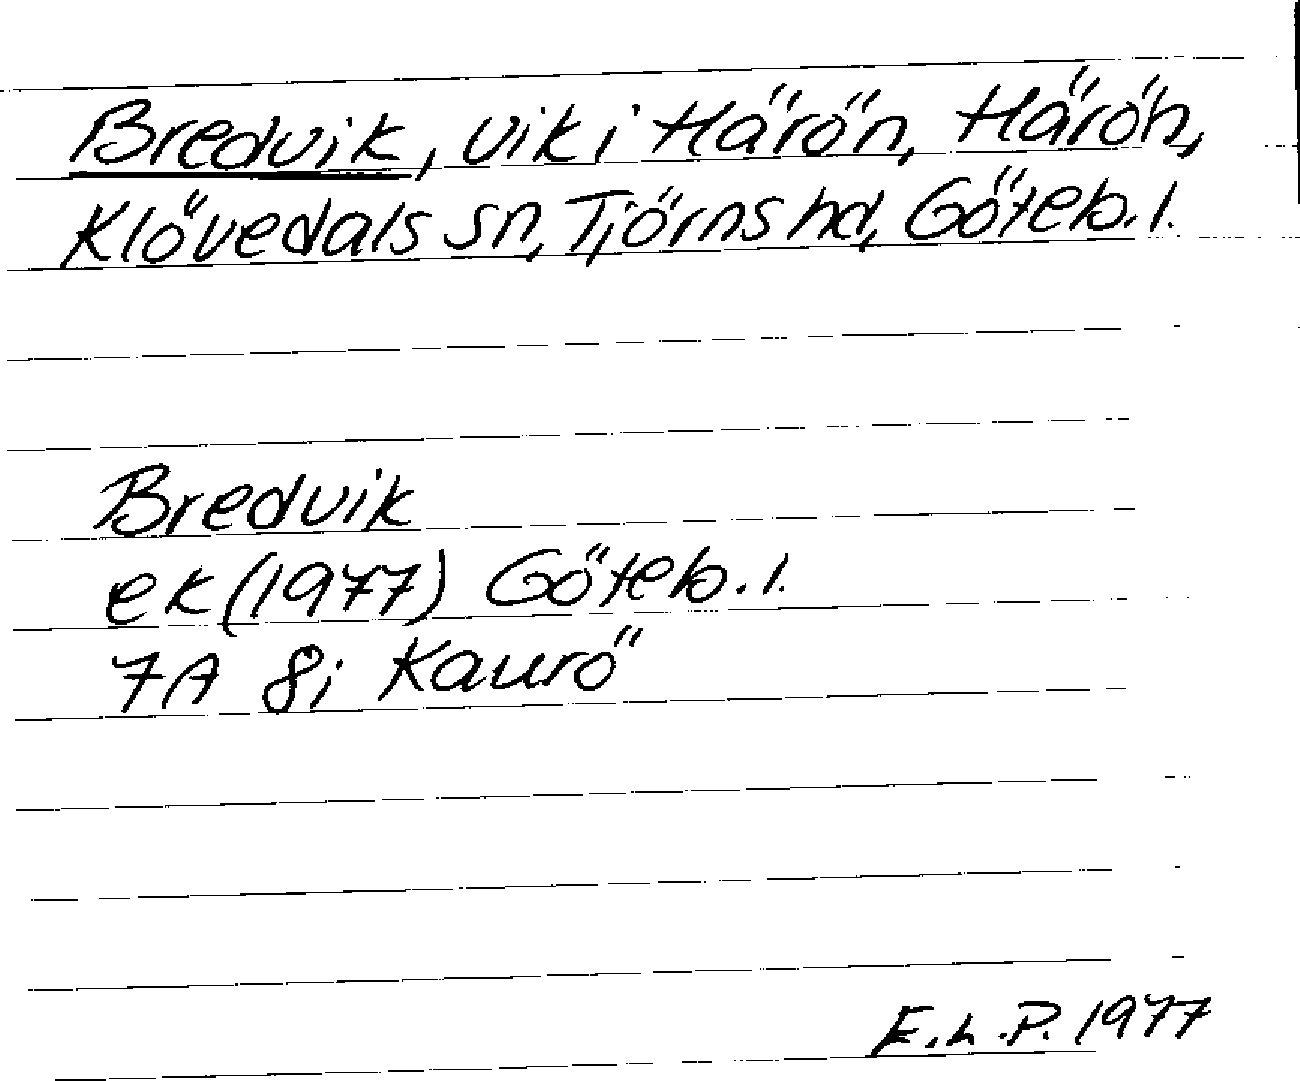 Bredvik, vik i Härön, Härön,
Klövedals sn, Tjörns hd, Göteb. l.
Bredvik
ek (1977) Göteb. l.
7A 8i Kaurö
E.L.P. 1977